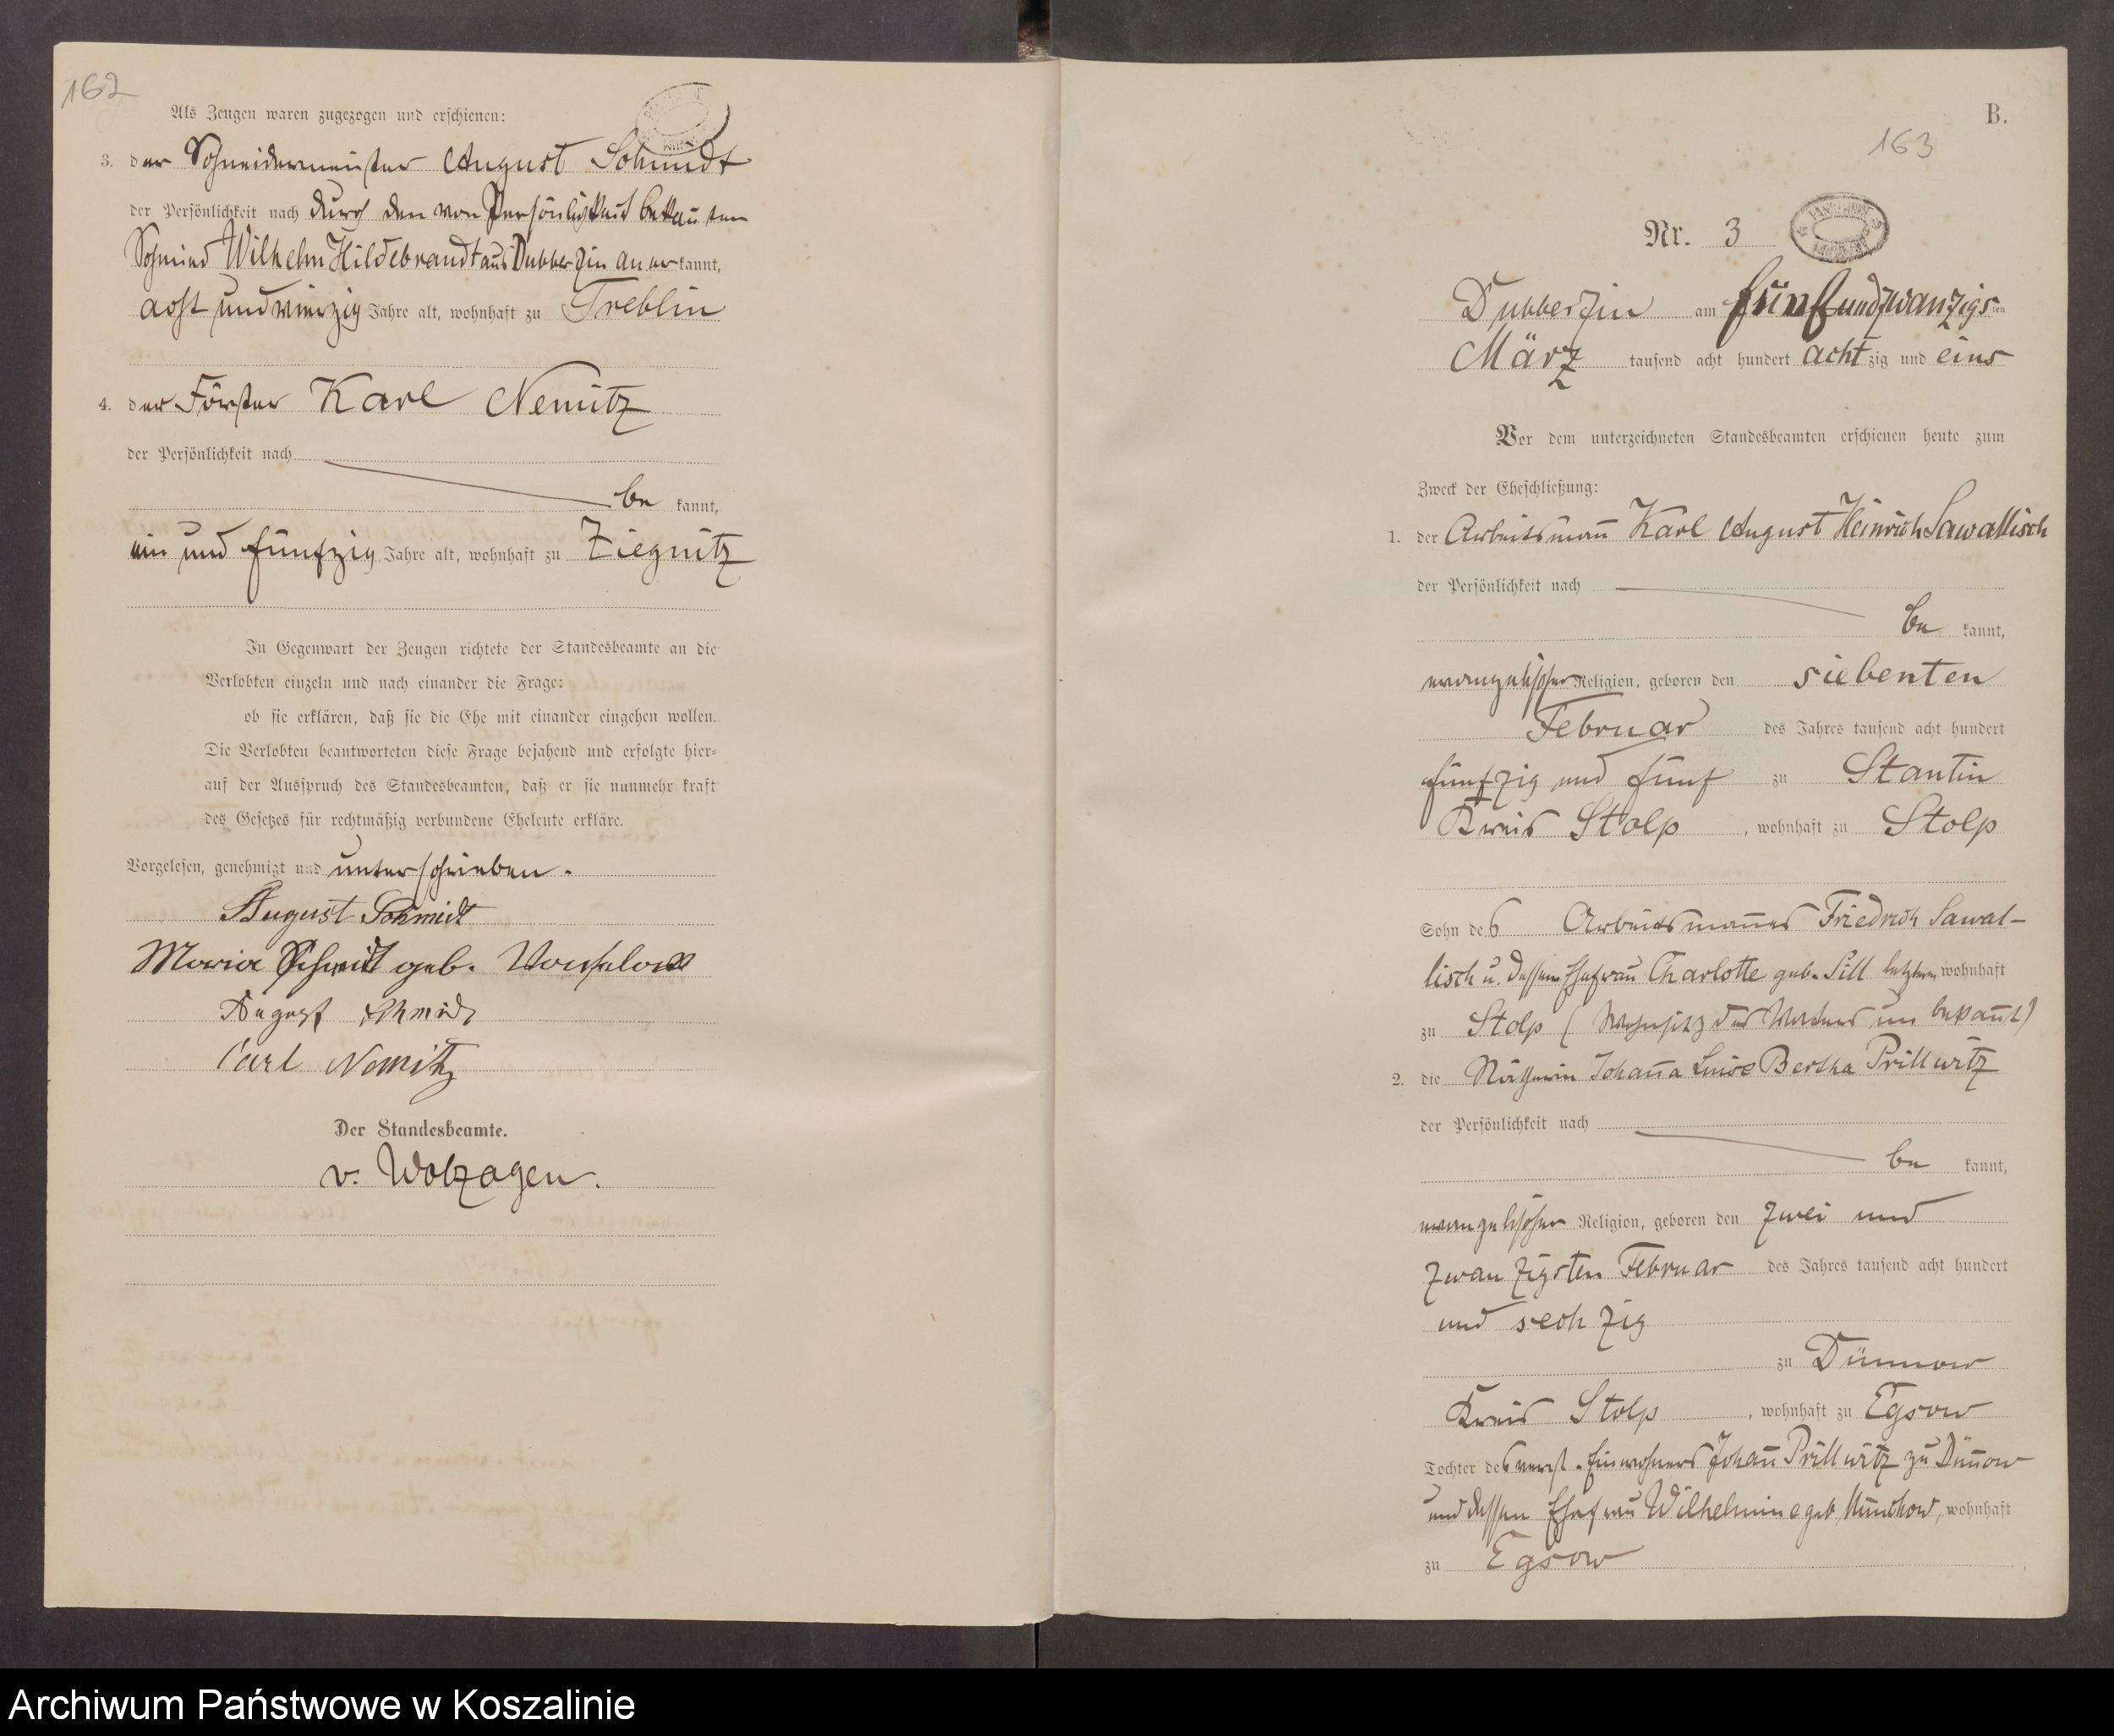 162
Als Zeugen waren zugezogen und erschienen:
3. der Schneidermeister August Schmidt
der Persönlichkeit nach durch den von Persönlichkeit bekan̄ten
Schmied Wilhelm Hildebrandt aus Dubberzin anerkannt,
acht und vierzig Jahre alt, wohnhaft zu Treblin
4. der Förster Karl Nemitz
der Persönlichkeit nach
be kannt,
ein und fünfzig Jahre alt, wohnhaft zu Ziegnitz
In Gegenwart der Zeugen richtete der Standesbeamte an die
Verlobten einzeln und nach einander die Frage:
ob sie erklären, daß sie die Ehe mit einander eingehen wollen.
Die Verlobten beantworteten diese Frage bejahend und erfolgte hier-
auf der Ausspruch des Standesbeamten, daß er sie nunmehr kraft
des Gesetzes für rechtmäßig verbundene Eheleute erkläre.
Vorgelesen, genehmigt und unterschrieben.
August Schmidt
Maria Schmidt geb.
August Schmidt
Carl Nemitz
Der Standesbeamte.
v. Wolzogen.
B.
163
Nr. 3
Dubberzin am fünfundzwanzigsten
März tausend acht hundert achtzig und eins
Vor dem unterzeichneten Standesbeamten erschienen heute zum
Zweck der Eheschließung:
1. der Arbeitsman̄ Karl August Heinrich Sawallisch
der Persönlichkeit nach
be kannt,
evangelischer Religion, geboren den siebenten
Februar des Jahres tausend acht hundert
fünfzig und fünf zu Stantin
Kreis Stolp, wohnhaft zu Stolp
Sohn des Arbeitsman̄es Friedrich Sawal-
lisch u. dessen Ehefrau Charlotte geb. Sill letztere wohnhaft
zu Stolp (Wohnsitz des Vaters un bekan̄t)
2. die Nätherin Johan̄a Luise Bertha Prillwitz
der Persönlichkeit nach
be kannt,
evangelischer Religion, geboren den zwei und
zwanzigsten Februar des Jahres tausend acht hundert
und sechzig
zu Dünnow
Kreis Stolp, wohnhaft zu Egsow
Tochter des verst. Einwohners Johan̄ Prillwitz zu Dün̄ow
und dessen Ehefrau Wilhelmine geb. Munchow, wohnhaft
zu Egsow
Archiwum Państwowe w Koszalinie